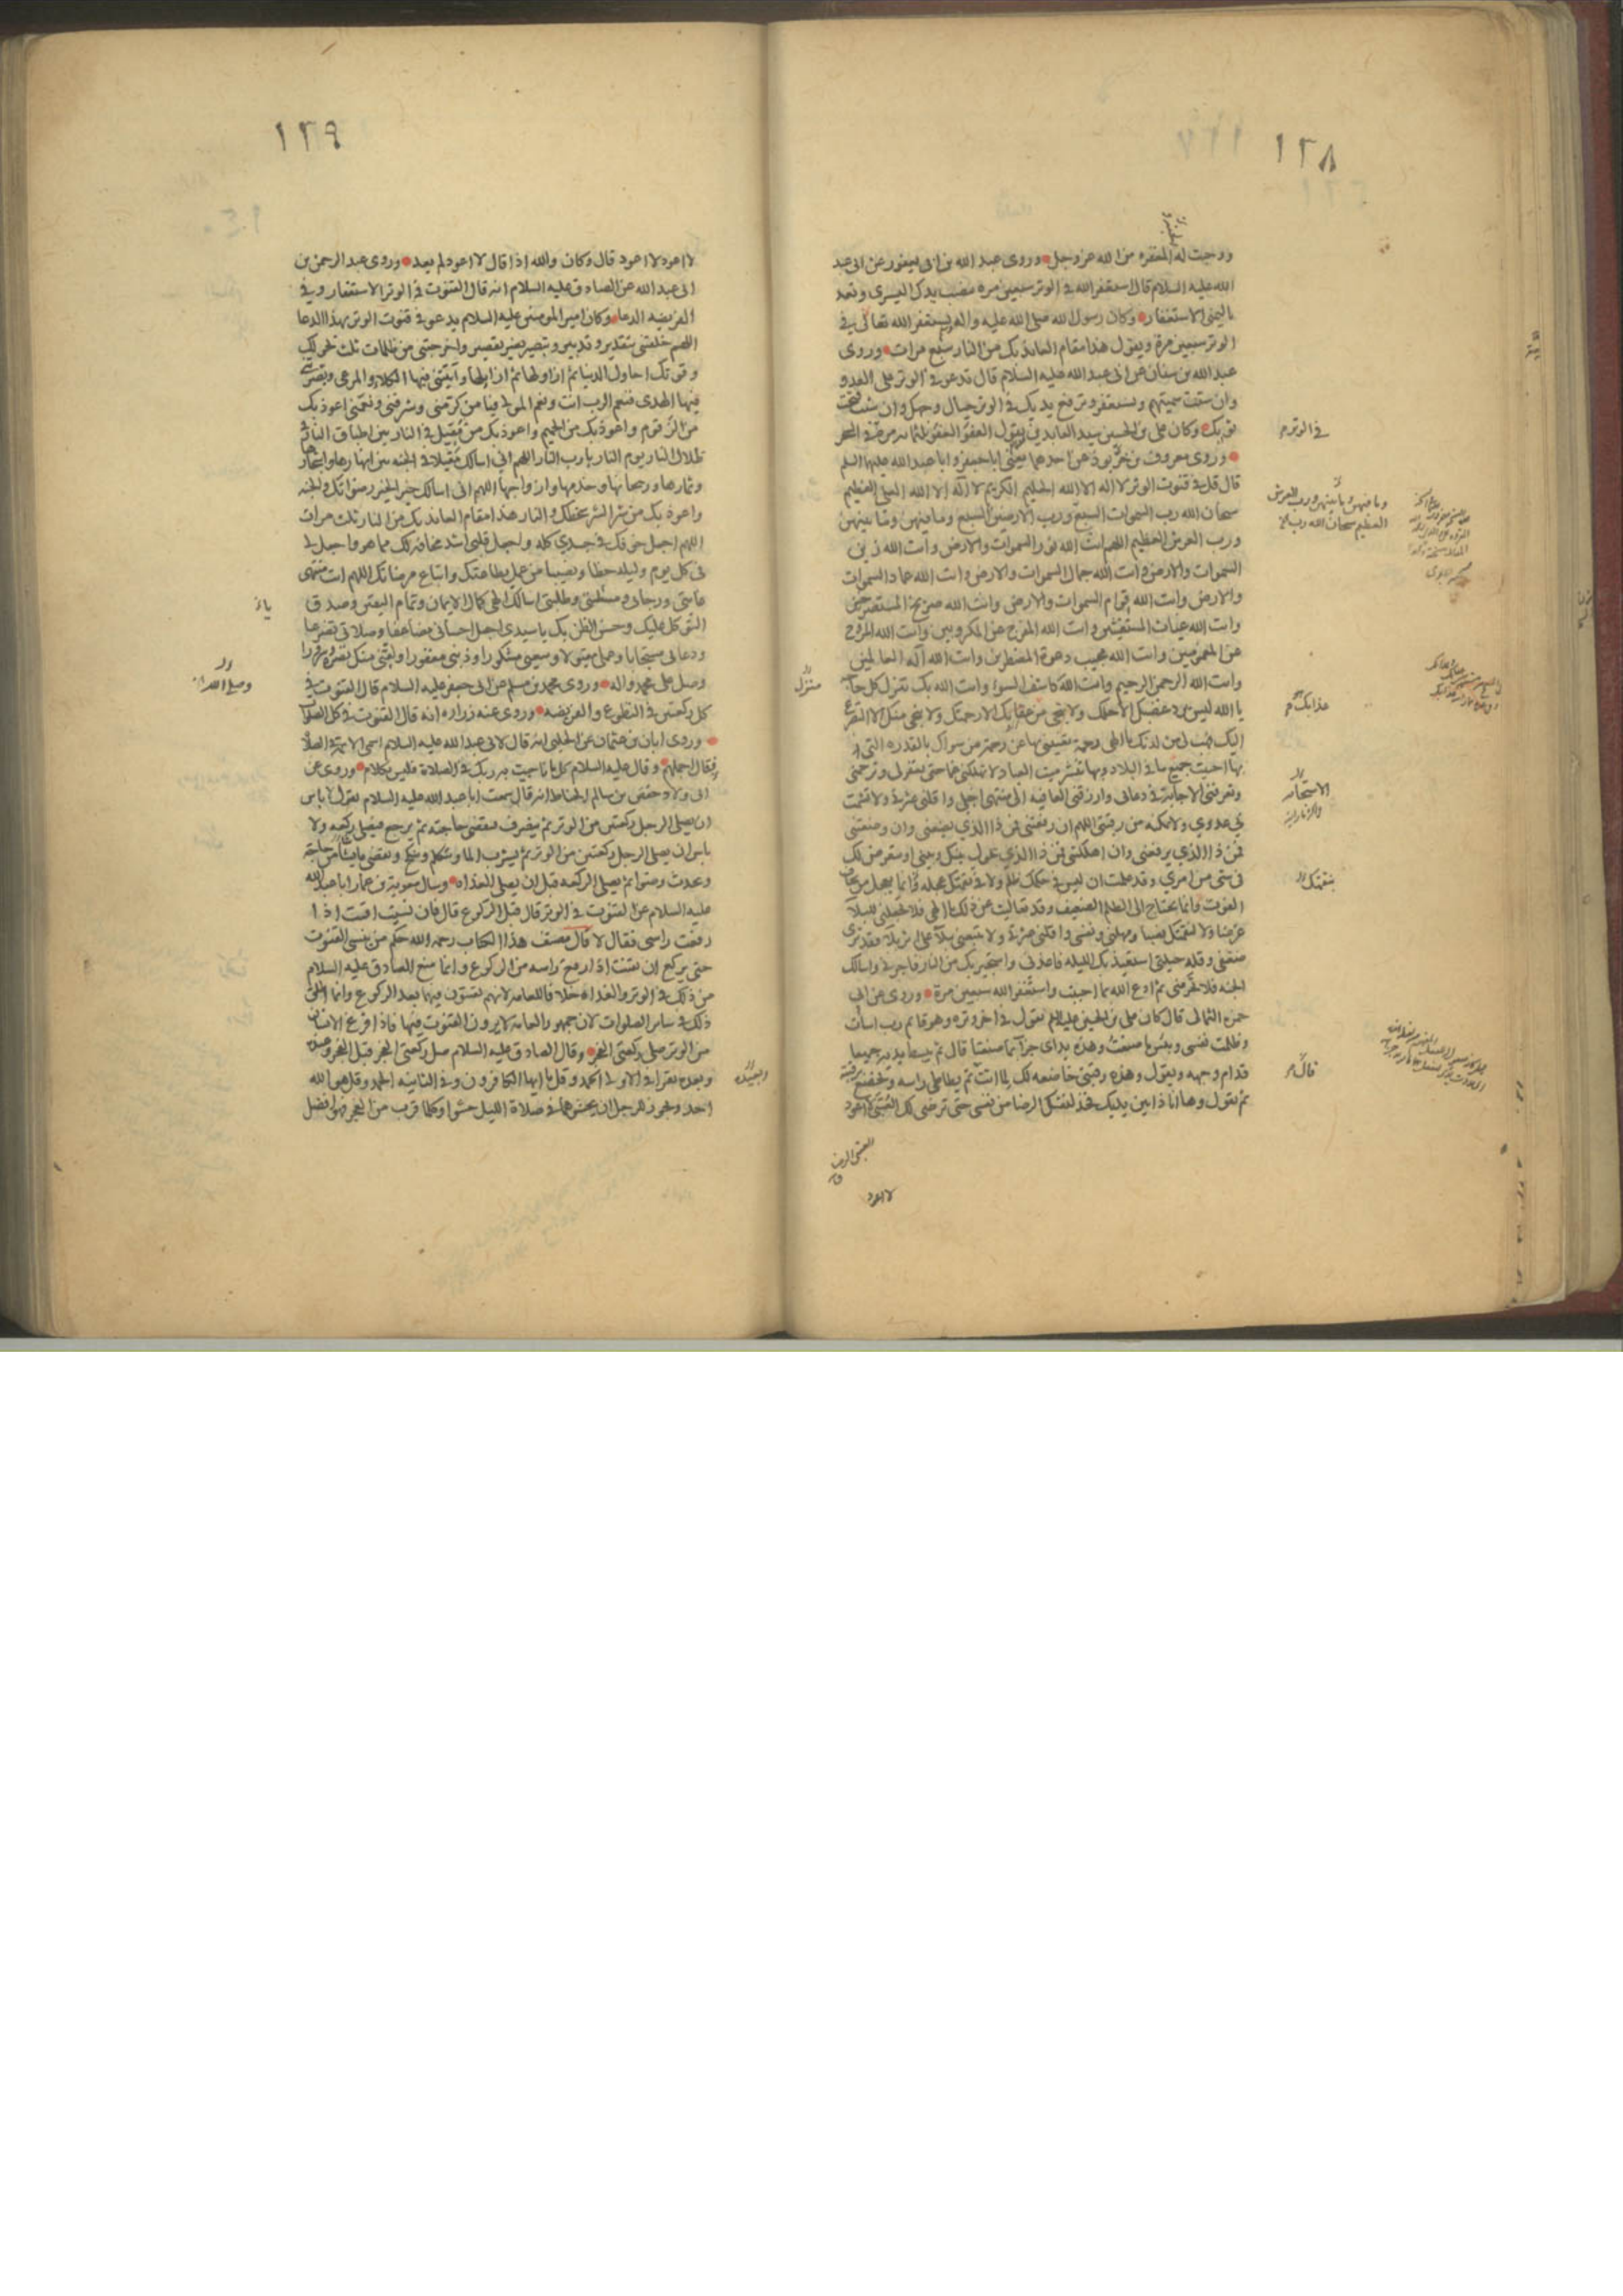 ١٣٨
ووجبت له المغفره من الله عز وجل وروى عبد الله بن ابى يعفور عن ابى عبد
الله عليه السلام قال استغفر الله فى الوتر سبعين مره تنصب يدك اليسرى وتعد
باليمنى الاستغفار وكان رسول الله صلى الله عليه واله يستغفر الله تعالى فى
الوتر سبعين مرة ويقول هذا مقام العائذ بك من النار سبع مرات وروى
عبد الله بن سنان عن ابى عبد الله عليه السلام قال تدعو فى الوتر على العدو
وان شئت سميتهم وتستغفر وترفع يديك فى الوتر حيال وجهك وان شئت تحت
ثوبك وكان على بن الحسين سيد العابدين يقول العفو العفو ثلثمائه مره فى السحر
وروى معروف بن خربوذ عن احدهما يعنى ابا جعفر وابا عبد الله عليهما السلم
قال قل فى قنوت الوتر لا اله الا الله الحليم الكريم لا اله الا الله العلى العظيم
سبحان الله رب السموات السبع ورب الارضين السبع وما فيهن وما بينهن
ورب العرش العظيم اللهم انت الله نور السموات والارض وانت الله زين
السموات والارض وانت الله جمال السموات والارض وانت الله عماد السموات
والارض وانت الله قوام السموات والارض وانت الله صريخ المستصرخين
وانت الله غياث المستغيثين وانت الله المفرج عن المكروبين وانت الله المروح
عن المغمومين وانت الله مجيب دعوة المضطرين وانت الله اله العالمين
وانت الله الرحمن الرحيم وانت الله كاشف السوء وانت الله بك تنزل كل حاجة
يا الله ليس يرد غضبك الا حلمك ولا ينجى من عقابك الا رحمتك ولا ينجى منك الا التضرع
اليك فهب لى من لدنك يا الهى رحمة تغنينى بها عن رحمة من سواك بالقدره التى
بها احييت جميع ما فى البلاد وبها تنشر ميت العباد ولا تهلكنى غما حتى تغفر لى وترحمنى
وتعرفنى الاجابة فى دعائى وارزقنى العافيه الى منتهى اجلى واقلنى عثرتى ولا تشمت
بى عدوي ولا تمكنه من رقبتى اللهم ان رفعتنى فمن ذا الذي يضعنى وان وضعتنى
فمن ذا الذي يرفعنى وان اهلكتنى فمن ذا الذي يحول بينك وبينى او يتعرض لك
فى شئ من امري وقد علمت ان ليس فى حكمك ظلم ولا فى نقمتك عجله وانما يعجل من يخاف
الفوت وانما يحتاج الى الظلم الضعيف وقد تعاليت عن ذلك يا الهى فلا تجعلنى للبلآ
غرضا ولا لنقمتك نصبا ومهلنى ونفسنى واقلنى عثرتى ولا تتبعنى ببلآ على اثر بلآ فقد ترى
ضعفى وقلة حيلتى استعيذ بك الليله فاعذنى واستجير بك من النار فاجرنى واسالك
الجنه فلا تحرمنى ثم ادع الله بما احببت واستغفر الله سبعين مرة وروى عن ابى
حمزه الثمالى قال كان على بن الحسين عليه السلم يقول فى اخر وتره وهو قائم رب اسأت
وظلمت نفسى وبئس ما صنعت وهذه يداى جزآ بما صنعتا قال ثم يبسط يديه جميعا
قدام وجهه ويقول وهذه رقبتى خاضعه لك لما اتت ثم يطاطى راسه ويخضع برقبته
ثم يقول وها انا ذا بين يديك فخذ لنفسك الرضا من نفسى حتى ترضى لك العتبى لا اعود
لا اعود
فى الوتر
وما فيهن وما بينهن ورب العرش
العظيم سبحان الله رب
منزل
عذابك
بنقمتك
قال
١٣٩
لا اعود لا اعود قال وكان والله اذا قال لا اعود لم يعد وروى عبد الرحمن بن
ابى عبد الله عن الصادق عليه السلام انه قال القنوت فى الوتر الاستغفار وفى
الفريضه الدعا وكان امير المومنين عليه السلام يدعو فى قنوت الوتر بهذا الدعا
اللهم خلقتنى بتقدير وتدبير وتبصير بغير تقصير واخرجتنى من ظلمات ثلث بحولك
وقوتك احاول الدنيا ثم ازاولها ثم ازايلها وآتيتنى فيها الكلاء والمرعى وبصرتنى
فيها الهدى فنعم الرب انت ونعم المولى فيا من كرمنى وشرفنى ونعمنى اعوذ بك
من الزقوم واعوذ بك من الحميم واعوذ بك من مقيل فى النار بين اطباق النار فى
ظلال النار يوم النار يا رب النار اللهم انى اسالك مقيلا فى الجنه بين انهارها واشجارها
وثمارها وريحانها وخدمها وازواجها اللهم انى اسالك خير الخير رضوانك والجنه
واعوذ بك من شر الشر سخطك والنار هذا مقام العائذ بك من النار ثلث مرات
اللهم اجعل خوفك فى جسدي كله واجعل قلبى اشد مخافة لك مما هو واجعل لى
فى كل يوم وليله حظا ونصيبا من عمل بطاعتك واتباع مرضاتك اللهم انت منتهى
غايتى ورجائى ومسئلتى وطلبتى اسالك الهى كمال الايمان وتمام اليقين وصدق
التوكل عليك وحسن الظن بك يا سيدى اجعل احسانى مضاعفا وصلاتى تضرعا
ودعائى مستجابا وعملى مقبولا وسعيى مشكورا وذنبى مغفورا ولقنى منك نضرة وسرورا
وصل على محمد واله وروى محمد بن مسلم عن ابى جعفر عليه السلام قال القنوت فى
كل ركعتين فى التطوع والفريضه وروى عنه زراره انه قال القنوت فى كل الصلوات
وروى ابان بن عثمان عن الحلبى انه قال لابى عبد الله عليه السلام اسمى الائمة فى الصلاة
فقال اجملهم وقال عليه السلام كل ما ناجيت به ربك فى الصلاة فليس بكلام وروى عن
ابى ولاد حفص بن سالم الحناط انه قال سمعت ابا عبد الله عليه السلام يقول لا باس
ان يصلى الرجل ركعتين من الوتر ثم ينصرف فيقضى حاجته ثم يرجع فيصلى ركعه ولا
باس ان يصلى الرجل ركعتين من الوتر ثم يشرب الما ويتكلم وينكح ويقضى ما يشاء من حاجته
ويحدث وضوا ثم يصلى الركعه قبل ان يصلى الغداه وسال معوية بن عمار ابا عبد الله
عليه السلام عن القنوت فى الوتر قال قبل الركوع قال فان نسيت اقنت اذا
رفعت راسى فقال لا قال مصنف هذا الكتاب رحمه الله حكم من ينسى القنوت
حتى يركع ان يقنت اذا رفع راسه من الركوع وانما منع الصادق عليه السلام
من ذلك فى الوتر والغداه خلافا للعامه لانهم يقنتون فيها بعد الركوع وانما اطلق
ذلك فى سائر الصلوات لان جمهور العامه لا يرون القنوت فيها فاذا فرغ الانسان
من الوتر صلى ركعتى الفجر وقال الصادق عليه السلام صل ركعتى الفجر قبل الفجر وعنده
وبعده تقرا فى الاولى الحمد وقل يا ايها الكافرون وفى الثانيه الحمد وقل هو الله
احد ويجوز للرجل ان يحشوهما فى صلاة الليل حشوا وكلما قرب من الفجر فهو افضل
وبعيده